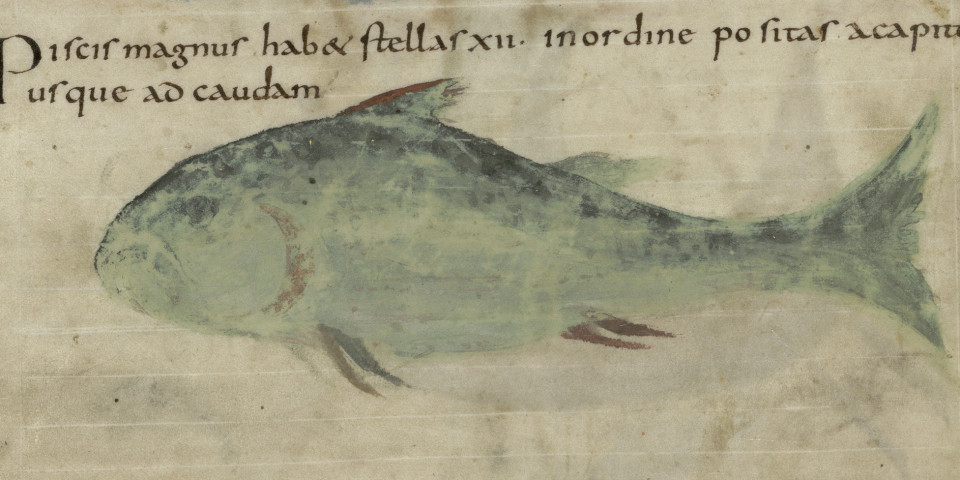 Piscis magnus hab& stellas xii· in ordine positas a capit
usque ad caudam